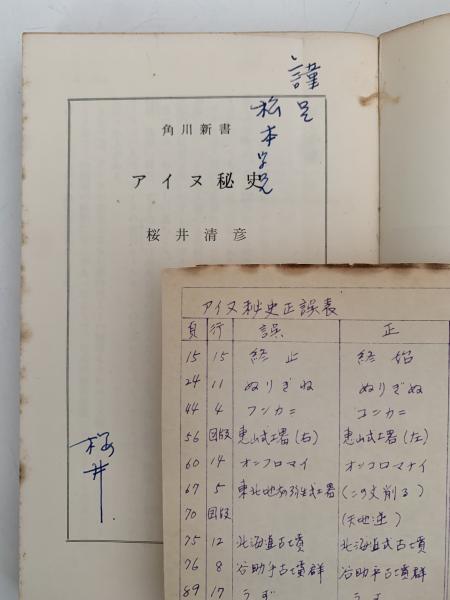 謹呈
松本学兄
角川新書
アイヌ秘史
桜井清彦
桜井
アイヌ秘史正誤表
頁 行 誤 正
15 15 終止 終始
24 11 ぬりぎね ぬりぎぬ
44 4 フンカニ コンカニ
56 図版 恵山式土器(右) 恵山式土器(左)
60 14 オンコロマイ オンコロマナイ
67 5 東北地方弥生式土器 (この文削る)
70 図版 (天地逆)
75 12 北海道古墳 北海道式古墳
76 8 谷助乎古墳群 谷助平古墳群
89 17